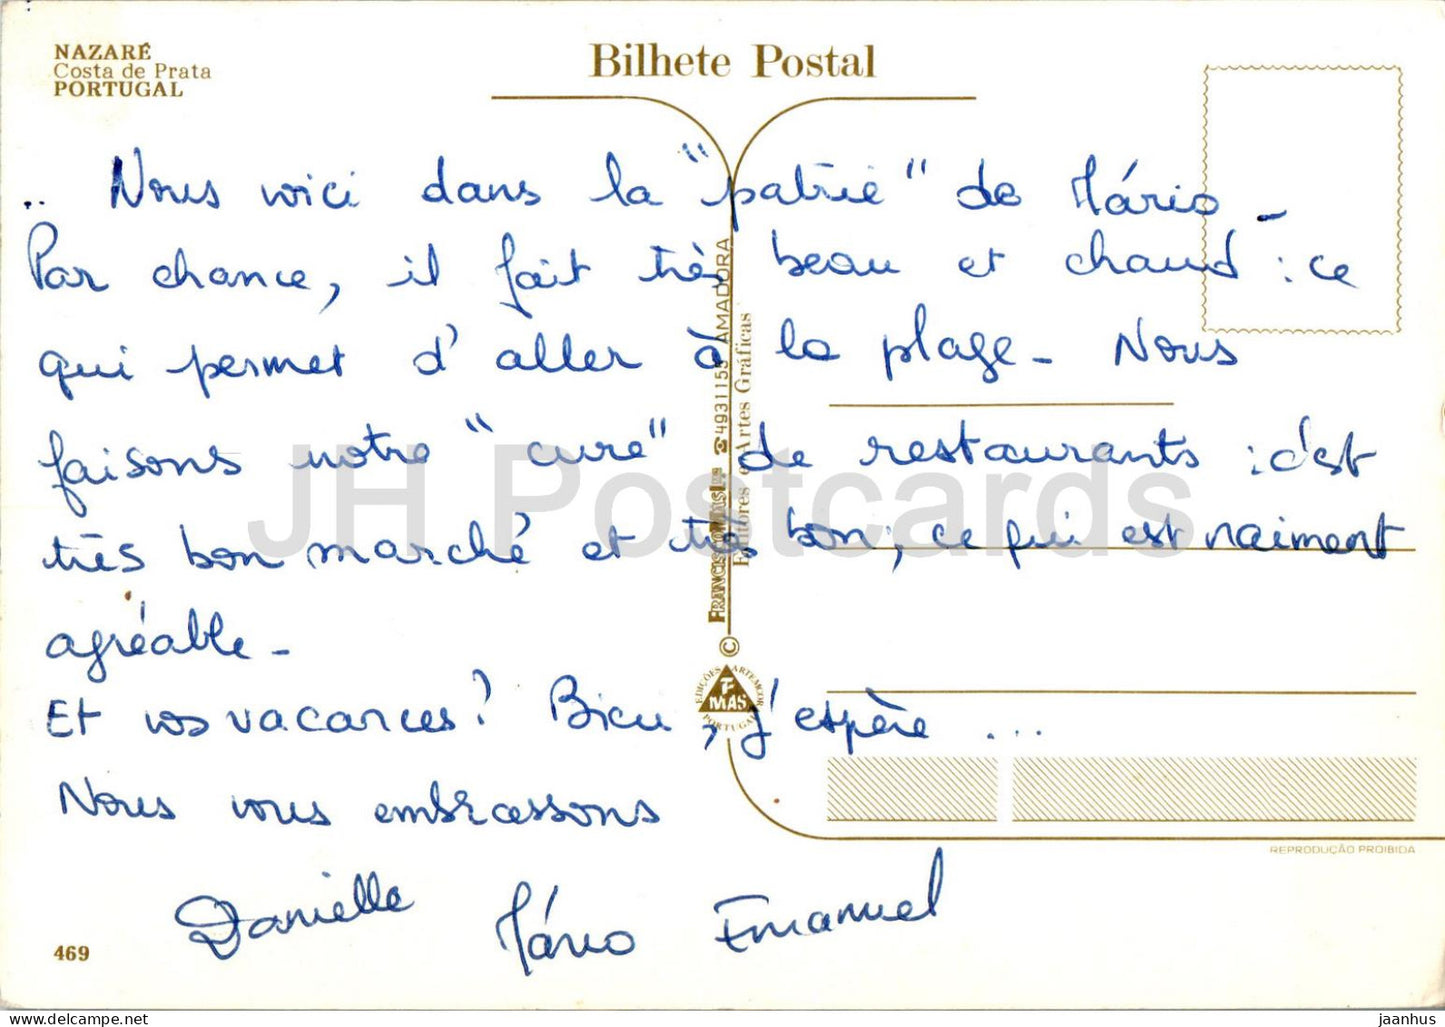 NAZARÉ
Costa de Prata
PORTUGAL
Bilhete Postal
.. Nous voici dans la "patrie" de Mário -
Par chance, il fait très beau et chaud : ce
qui permet d'aller à la plage - Nous
faisons notre "cure" de restaurants : c'est
très bon marché et très bon, ce qui est vraiment
agréable -
Et vos vacances ? Bien, j'espère ...
Nous vous embrassons
Danielle Mário Emanuel
469
4931153 AMADORA
Editores e Artes Gráficas
©
EDIÇÕES ARTEMCOR
F
MAS
PORTUGAL
REPRODUÇÃO PROIBIDA
JH Postcards
jaanhus ©www.delcampe.net